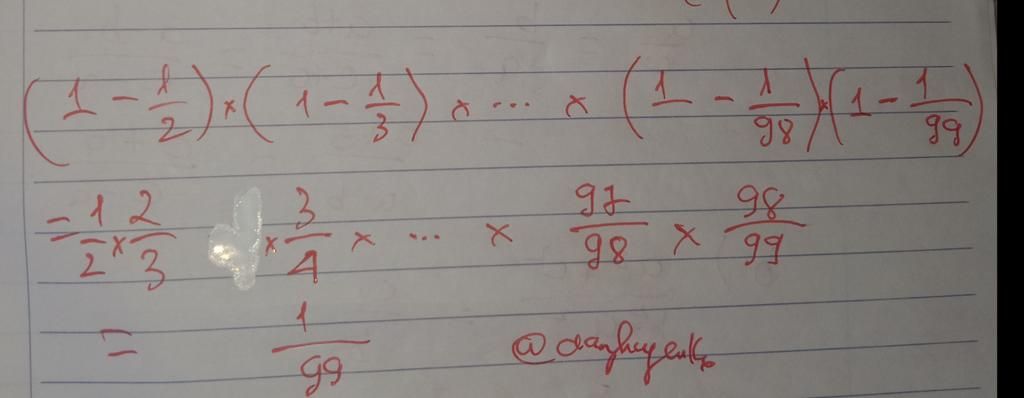 (1 - 1/2) × (1 - 1/3) × ... × (1 - 1/98) × (1 - 1/99)
= 1/2 × 2/3 × 3/4 × ... × 97/98 × 98/99
= 1/99